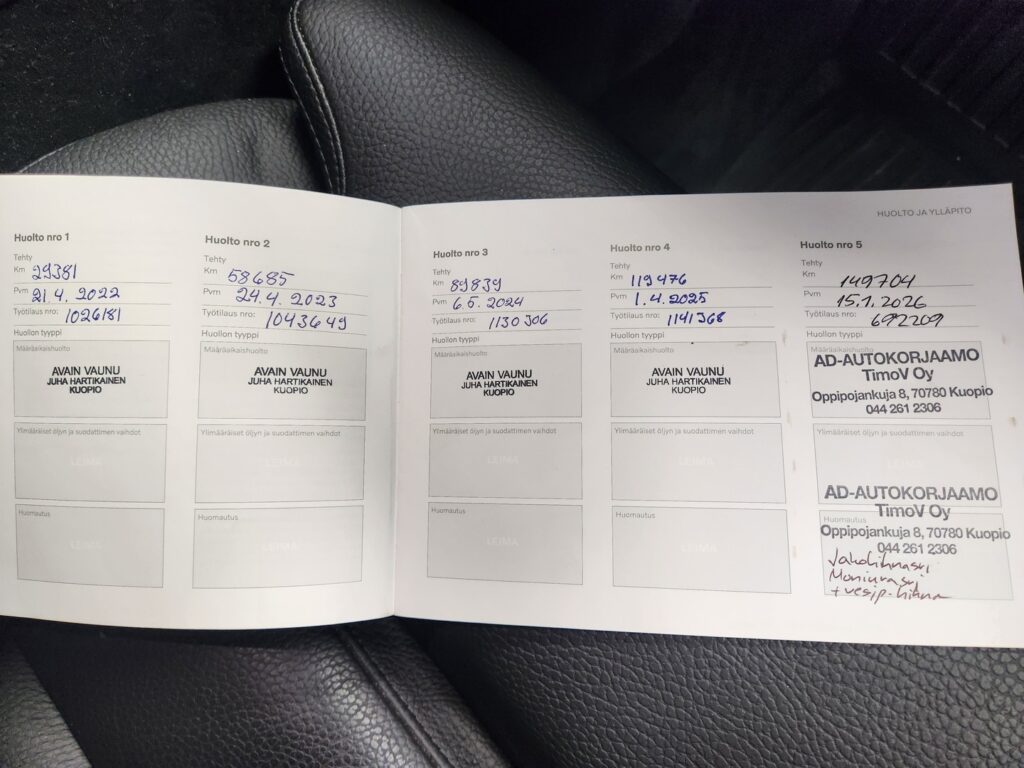 HUOLTO JA YLLÄPITO
Huolto nro 1
Tehty
Km 29381
Pvm 21.4. 2022
Työtilaus nro: 1026181
Huollon tyyppi
Määräaikaishuolto
AVAIN VAUNU
JUHA HARTIKAINEN
KUOPIO
Ylimääräiset öljyn ja suodattimen vaihdot
LEIMA
Huomautus
LEIMA
Huolto nro 2
Tehty
Km 58685
Pvm 24.4. 2023
Työtilaus nro: 1043649
Huollon tyyppi
Määräaikaishuolto
AVAIN VAUNU
JUHA HARTIKAINEN
KUOPIO
Ylimääräiset öljyn ja suodattimen vaihdot
LEIMA
Huomautus
LEIMA
Huolto nro 3
Tehty
Km 89839
Pvm 6.5. 2024
Työtilaus nro: 1130306
Huollon tyyppi
Määräaikaishuolto
AVAIN VAUNU
JUHA HARTIKAINEN
KUOPIO
Ylimääräiset öljyn ja suodattimen vaihdot
LEIMA
Huomautus
LEIMA
Huolto nro 4
Tehty
Km 119476
Pvm 1.4. 2025
Työtilaus nro: 1141368
Huollon tyyppi
Määräaikaishuolto
AVAIN VAUNU
JUHA HARTIKAINEN
KUOPIO
Ylimääräiset öljyn ja suodattimen vaihdot
LEIMA
Huomautus
LEIMA
Huolto nro 5
Tehty
Km 149704
Pvm 15.1. 2026
Työtilaus nro: 692209
Huollon tyyppi
Määräaikaishuolto
AD-AUTOKORJAAMO
TimoV Oy
Oppipojankuja 8, 70780 Kuopio
044 261 2306
Ylimääräiset öljyn ja suodattimen vaihdot
LEIMA
AD-AUTOKORJAAMO
TimoV Oy
Huomautus
Oppipojankuja 8, 70780 Kuopio
044 261 2306
Jakohihnasrj
Moniurasrj
+ vesip. hihna